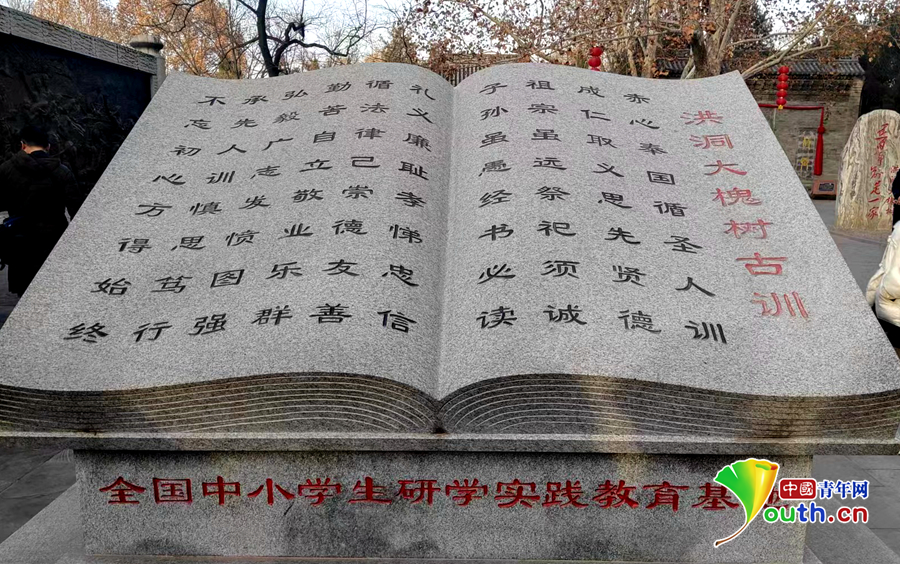 洪洞大槐树古训
赤心奉国循圣人训
成仁取义思先贤德
祖宗虽远祭祀须诚
子孙虽愚经书必读
礼义廉耻孝悌忠信
循法律己崇德友善
勤苦自立敬业乐群
弘毅广志发愤图强
承先人训慎思笃行
不忘初心方得始终
全国中小学生研学实践教育基
中國青年网
youth.cn